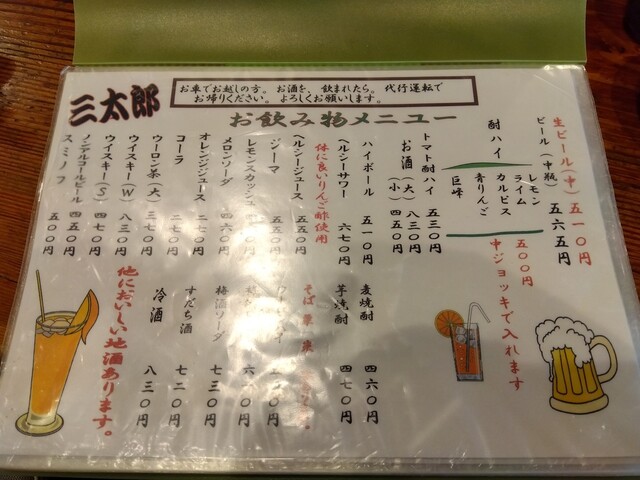 三太郎
お車でお越しの方。お酒を、飲まれたら。代行運転で
お帰りください。よろしくお願いします。
お飲み物メニュー
生ビール(中) 五一〇円
ビール(中瓶) 五六五円
酎ハイ
レモン
ライム
カルピス
青りんご
巨峰
五〇〇円
中ジョッキで入れます
トマト酎ハイ 五三〇円
お酒(大) 八三〇円
(小) 四五〇円
ハイボール 五一〇円
ヘルシーサワー 六七〇円
体に良いりんご酢使用
ヘルシージュース 五五〇円
ジーマ 五五〇円
レモンスカッシュ
メロンソーダ 四六〇円
オレンジジュース 二七〇円
コーラ 二七〇円
ウーロン茶(大) 三七〇円
ウイスキー(W) 八三〇円
ウイスキー(S) 四七〇円
ノンアルコールビール 四五〇円
スミノフ 五〇〇円
麦焼酎 四六〇円
芋焼酎 四七〇円
そば
梅酒ソーダ 七三〇円
すだち酒 七二〇円
冷酒 八三〇円
他においしい地酒あります。